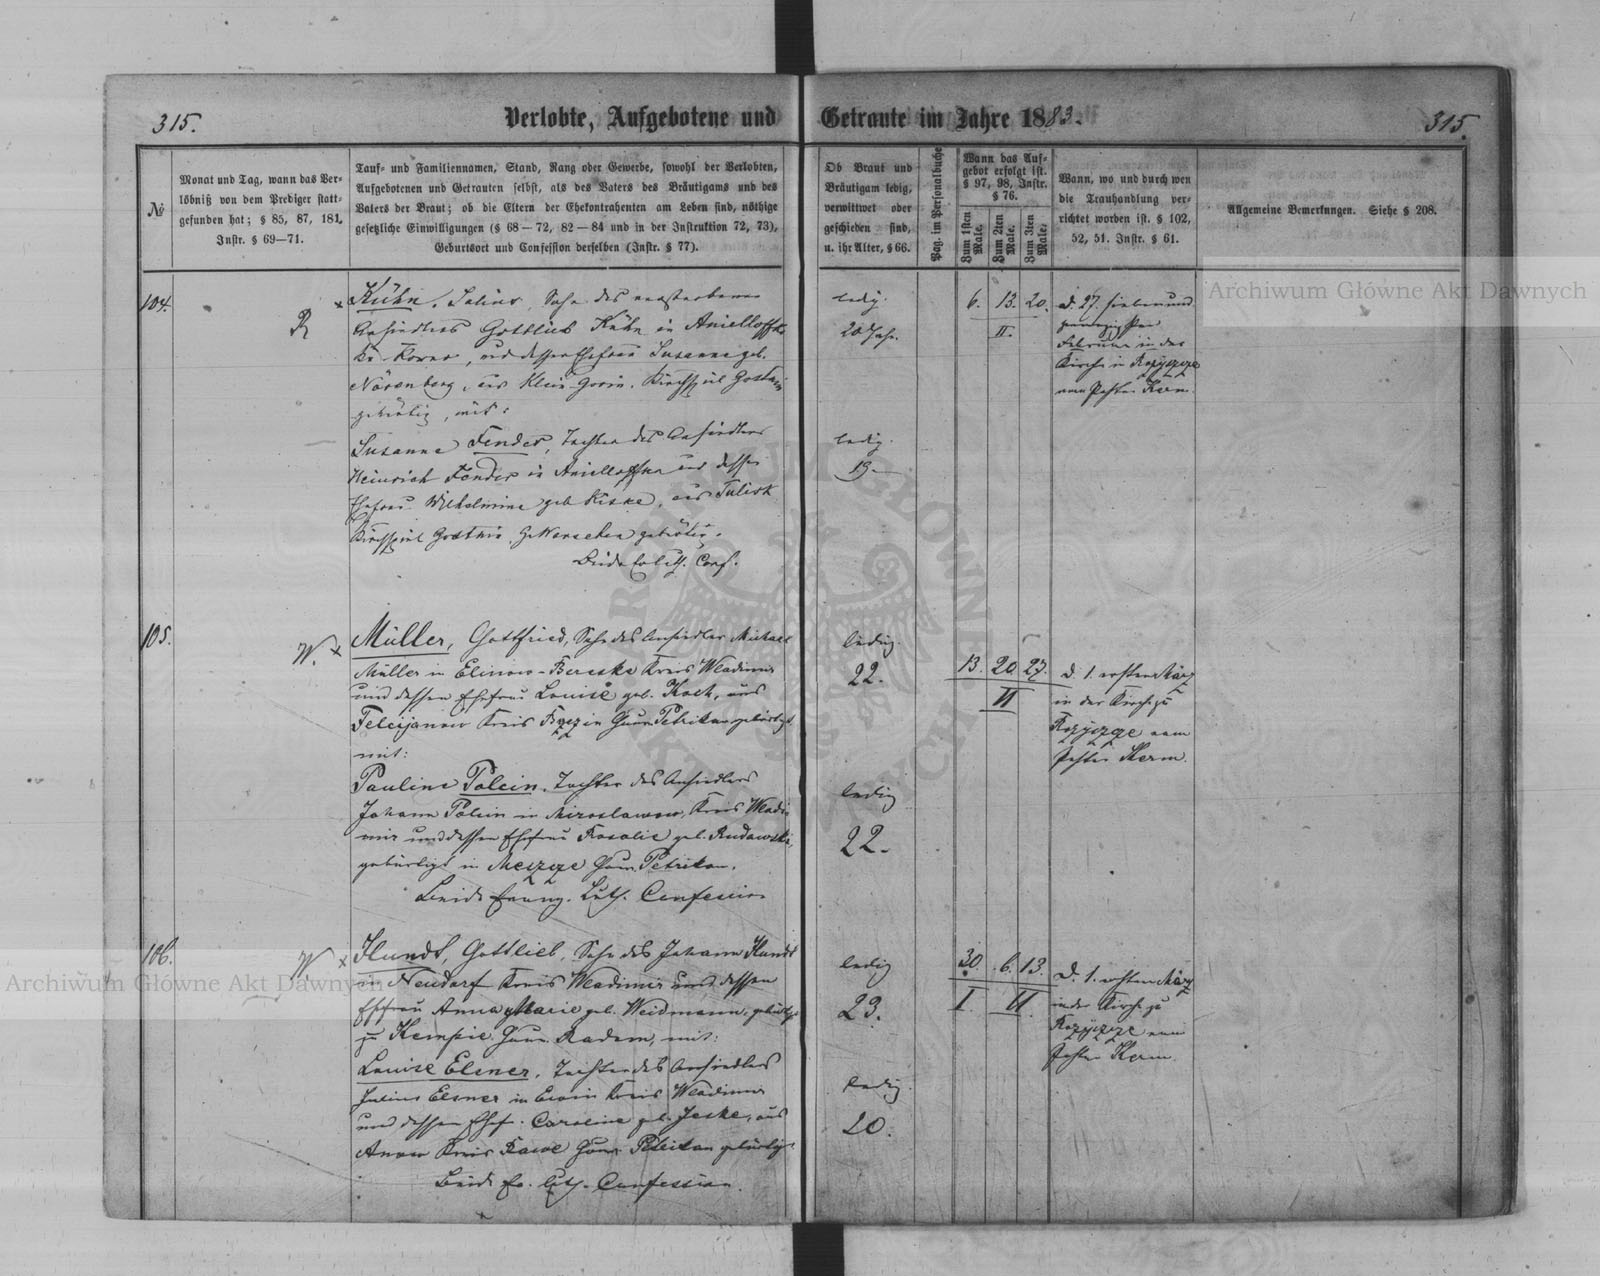 315.
Verlobte, Aufgebotene und
Getraute im Jahre 1883.
315.
№
Monat und Tag, wann das Ver-
löbniß von dem Prediger statt-
gefunden hat; § 85, 87, 181,
Instr. § 69—71.
Tauf- und Familiennamen, Stand, Rang oder Gewerbe, sowohl der Verlobten,
Aufgebotenen und Getrauten selbst, als des Vaters des Bräutigams und des
Vaters der Braut; ob die Eltern der Ehekontrahenten am Leben sind, nöthige
gesetzliche Einwilligungen (§ 68 — 72, 82 — 84 und in der Instruktion 72, 73),
Geburtsort und Confession derselben (Instr. § 77).
Ob Braut und
Bräutigam ledig,
verwittwet oder
geschieden sind,
u. ihr Alter, § 66.
Pag. im Personalbuche
Wann das Auf-
gebot erfolgt ist.
§ 97, 98, Instr.
§ 76.
Zum 1sten Male.
Zum 2ten Male.
Zum 3ten Male.
Wann, wo und durch wen
die Trauhandlung ver-
richtet worden ist. § 102,
52, 51. Instr. § 61.
Allgemeine Bemerkungen. Siehe § 208.
104.
R
× Kühn, Julius, Sohn des verstorbenen
Ansiedlers Gottlieb Kühn in Anielloffka
und dessen Ehefrau Susanna geb.
Nörenberg, aus Klein-Gorin, Kirchspiel Gostinin
gebürtig, mit:
Susanna Fender, Tochter des Ansiedlers
Heinrich Fender in Anielloffka und dessen
Ehefrau Wilhelmine geb. Kiske, aus
Kirchspiel gebürtig.
Beide Ev. luth. Conf.
ledig.
20 Jahr.
ledig.
19.
6. 13. 20.
II.
d. 27. sieben und
zwanzigsten
Februar in der
Kirche in Rozyszcze
vom Pastor Kerm.
105.
W. ×
Müller, Gottfried, Sohn des Ansiedlers Michael
Müller in Elinow-Bereske Kreis Wladimir
und dessen Ehefrau Louise geb. Koch, aus
Felicijanow Kreis Brzezin Gouv. Petrikau gebürtigt
mit:
Pauline Polein, Tochter des Ansiedlers
Johann Polein in Miroslawow, Kreis Wladi-
mir und dessen Ehefrau Rosalie geb. Rudawski,
gebürtigt in Gouv. Petrikau.
Beide Evang. Luth. Confession
ledig.
22.
ledig
22.
13. 20. 27.
II
d. 1. ersten März
in der Kirche zu
Rozyszcze vom
Pastor Kerm.
106.
W ×
Hundt, Gottlieb, Sohn des Johann Hundt
in Neudorf Kreis Wladimir und dessen
Ehefrau Anna Marie geb. Weidmann, gebürtigt
zu Kempie Gouv. Radom, mit:
Louise Elsner, Tochter des Ansiedlers
Julius Elsner in Kreis Wladimir
und dessen Ehef. Caroline geb. Jeske, aus
Kreis Rawe Gouv. Petrikau gebürtig.
Beide Ev. luth. Confession.
ledig
23.
ledig.
20.
30. 6. 13.
I. II.
d. 1. ersten März
in der Kirche zu
Rozyszcze vom
Pastor Kerm.
Archiwum Główne Akt Dawnych
Archiwum Główne Akt Dawnych